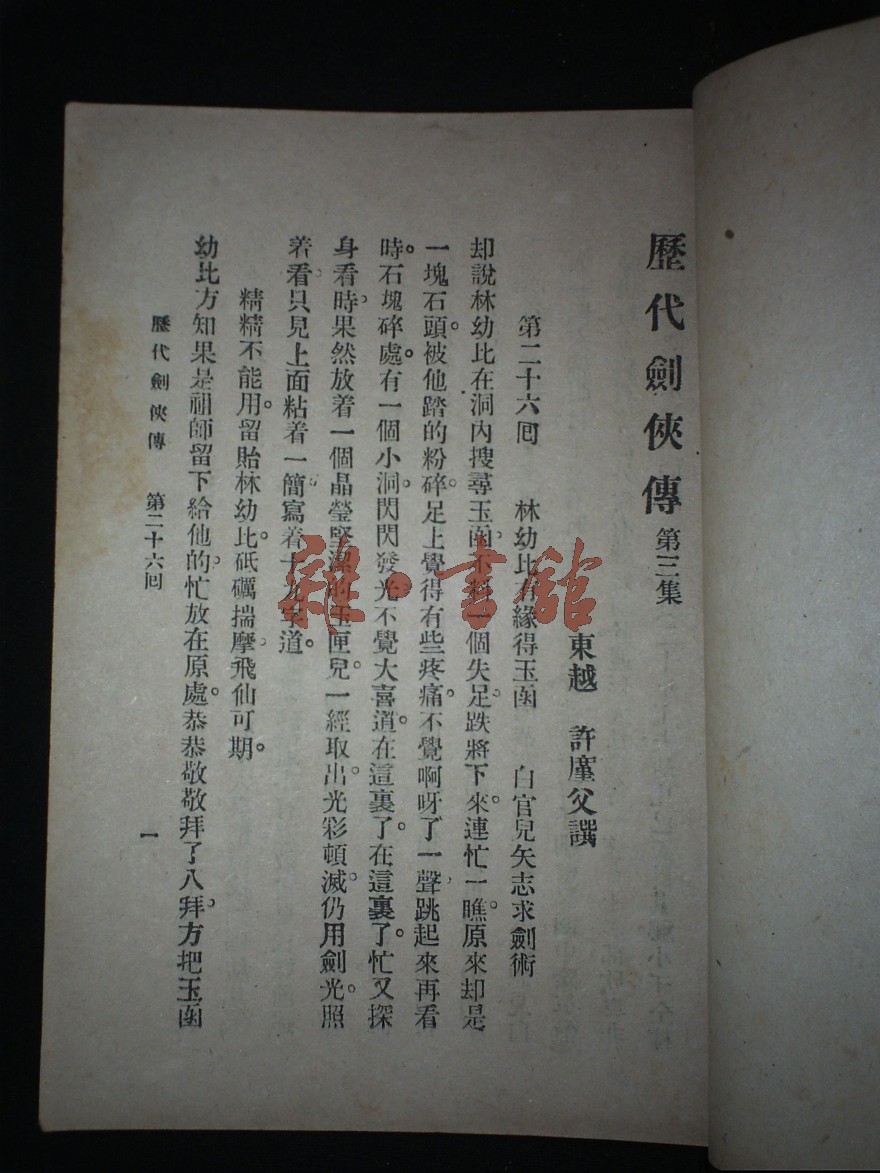 歷代劍俠傳 第三集
東越 許廑父譔
第二十六囘 林幼比有緣得玉函 白官兒矢志求劍術
却說林幼比在洞內搜尋玉函。不料一個失足。跌將下來。連忙一瞧。原來却是
一塊石頭。被他踏的粉碎。足上覺得有些疼痛。不覺啊呀了一聲。跳起來再看
時。石塊碎處。有一個小洞。閃閃發光。不覺大喜道。在這裏了。在這裏了。忙又探
身看時。果然放着一個晶瑩堅潔的玉匣兒。一經取出。光彩頓滅。仍用劍光。照
着看。只見上面粘着一簡。寫着十九字道。
精精不能用。留貽林幼比。砥礪揣摩。飛仙可期。
幼比方知果是祖師留下給他的。忙放在原處。恭恭敬敬拜了八拜。方把玉函
歷代劍俠傳 第二十六囘
一
雜·書館